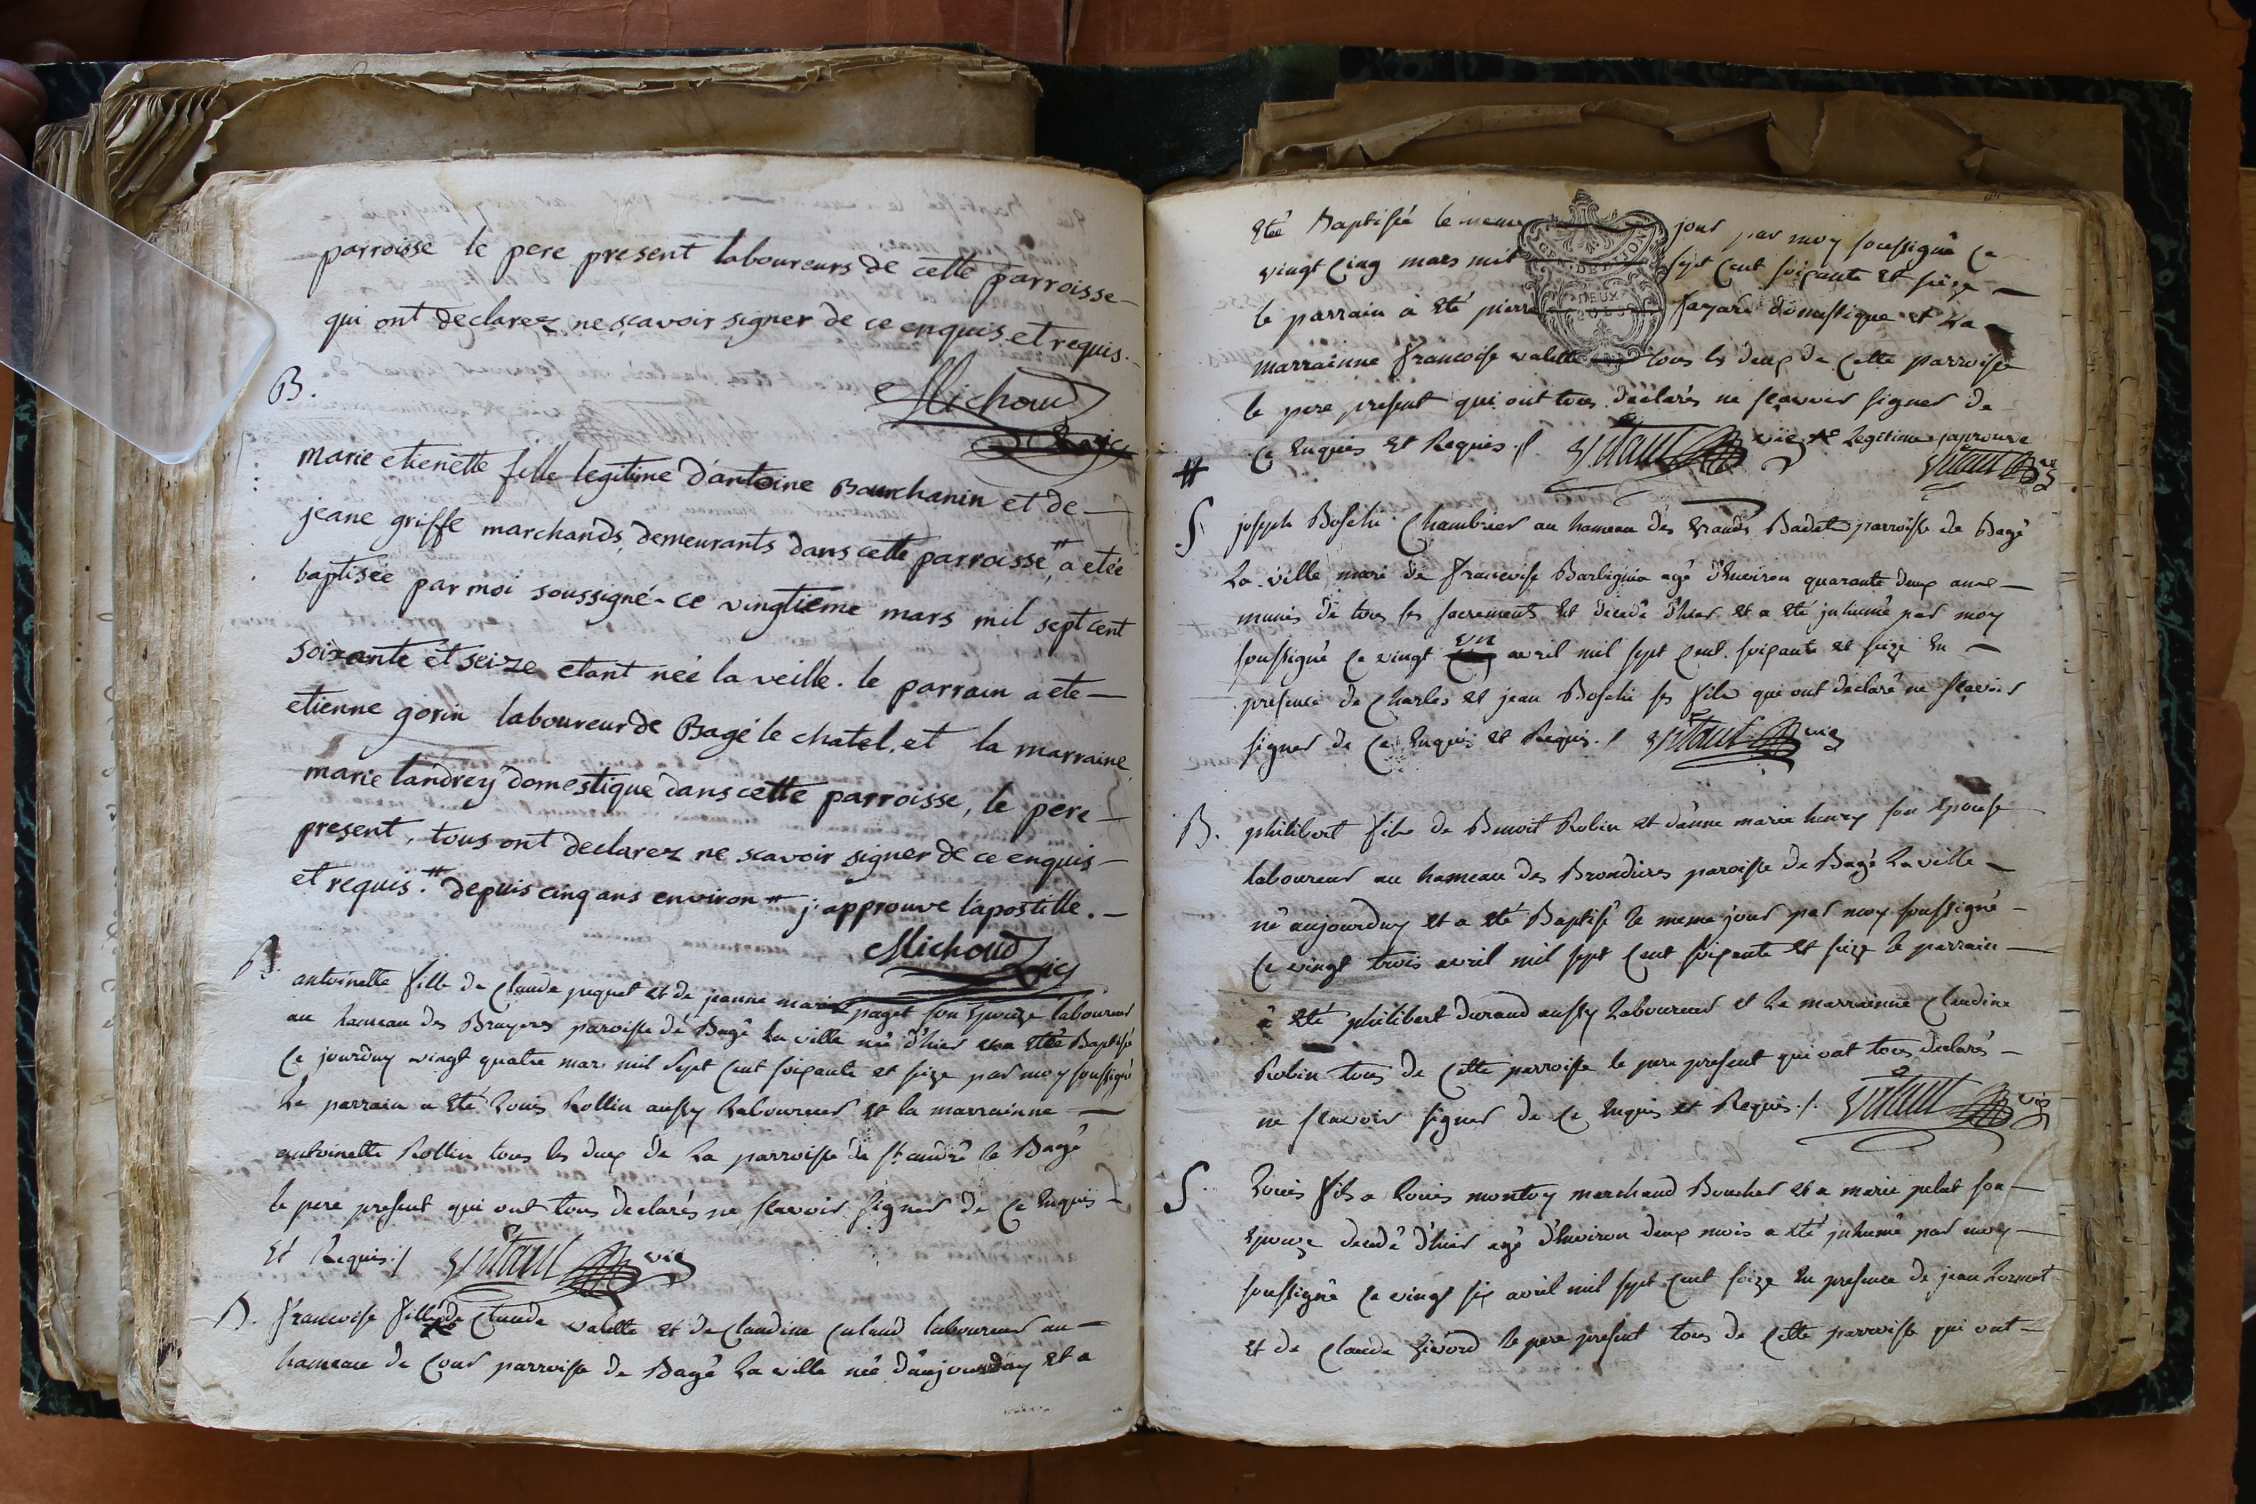 parroisse le pere present laboureurs de cette parroisse
qui ont declarez ne scavoir signer de ce enquis et requis.
Michoud
Vic
B.
marie etienette fille legitime d'antoine Bourchanin et de
jeane griffe marchands, demeurants dans cette parroisse # a etée
baptisée par moi soussigné ce vingtieme mars mil sept cent
soixante et seize etant née la veille. le parrain a ete
etienne gorin laboureur de Bagé le chatel, et la marraine
marie landrey domestique dans cette parroisse, le pere
present, tous ont declarez ne scavoir signer de ce enquis
et requis. # depuis cinq ans environ # j'approuve l'apostille.
Michoud Vic
B
antoinette fille de Claude piquet et de jeanne marie paget son Epouze laboureur
au hameau des Bruyeres paroisse de Bagé la ville née d'hier et a été Baptisé
Ce jourduy vingt quatre mars mil Sept Cent soixante et seize par moy soussigné
Le parrain a eté Louis Rollin aussy Laboureur et la marrainne
antoinette Rollin tous les deux de La parroisse de st andré le Bagé
le pere present qui ont tous declarés ne scavoir signer de Ce Enquis
Et Requis ./ vic
B. francoise fille de Claude valette et de Claudine laboureur au
hameau de Cour parroisse de Bagé La ville née d'aujourduy et a
Eteé Baptisée le meme jour par moy soussigné Ce
vingt Cinq mars mil sept Cent soixante et seize
le parrain à eté pierre fayard domestique et La
GEN. DE DIJON
DEUX SOLS
marrainne francoise valette tous les deux de Cette parroisse
le pere present qui ont tous declarés ne scavoir signer de
Ce Enquis et Requis ./ vic # Legitime japrouve
#
S joseph Chambrier au hameau des grands Badets parroisse de Bagé
La ville mari de francoise agé d'Environ quarante deux ans
munis de tous ses sacrements et decedé d'hier et a eté jnhumé par moy
soussigné Ce vingt un avril mil sept Cent soixante et seize En
presence de Charles et jean ses fils qui ont declaré ne scavoir
signer de Ce Enquis et Requis ./ vic
B. philibert fils de Benoit Robin et d'anne marie henry son Epouse
laboureur au hameau des Brondieres paroisse de Bagé La ville
né aujourduy et a eté Baptisé le meme jour par moy soussigné
Ce vingt trois avril mil sept Cent soixante et seize le parrain
à eté philibert durand aussy Laboureur et La marrainne Claudine
Robin tous de Cette parroisse le pere present qui ont tous declarés
ne scavoir signer de Ce Enquis et Requis ./. vic
S. Louis fils a Louis montoy marchand Boucher et a marie pelat son
Epouze decedé d'hier agé d'Environ deux mois a eté jnhumé par moy
soussigné Ce vingt six avril mil sept Cent seize En presence de jean
et de Claude le pere present tous de Cette parroisse qui ont